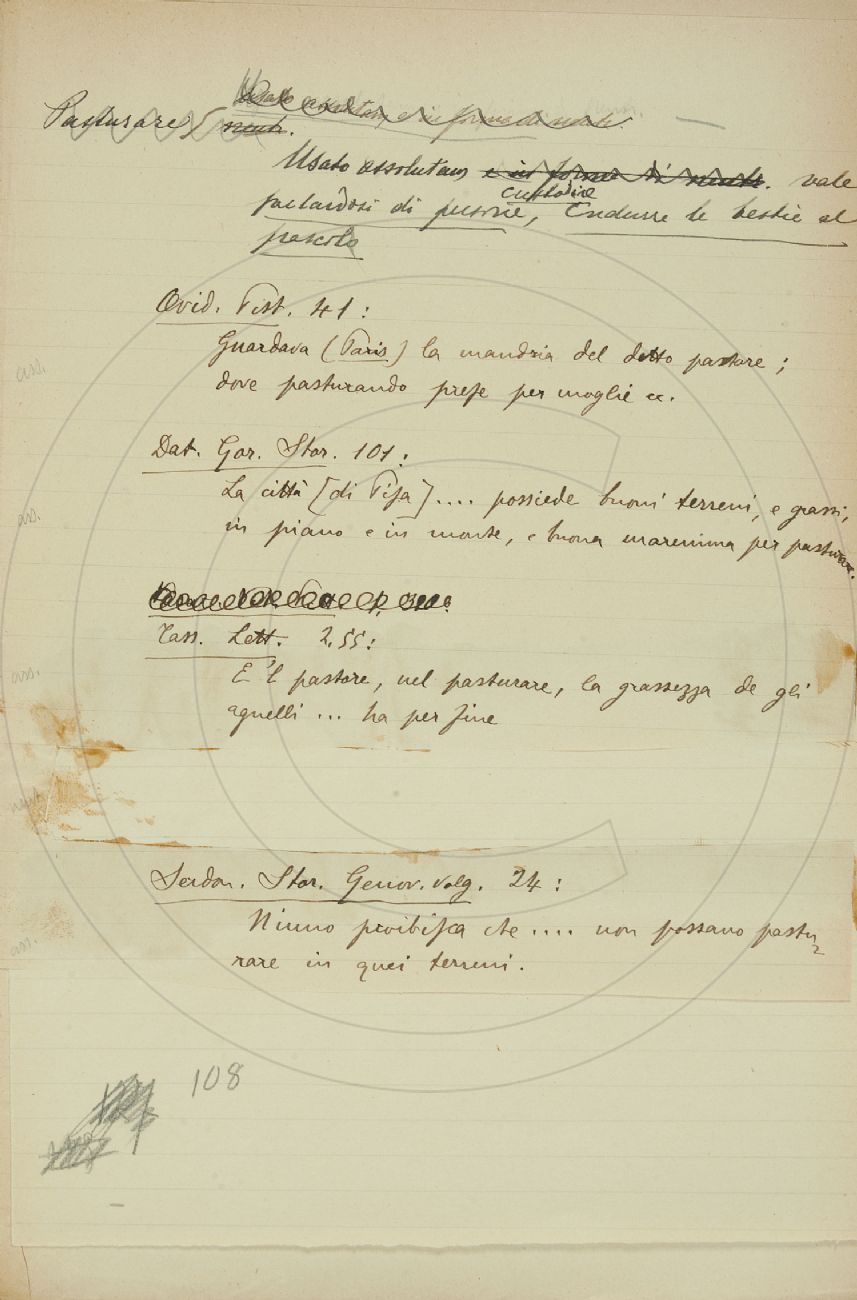 Pasturare
Usato assolutam e in forma di neutr.
neutr.
Usato assolutam e in forma di neutr. vale
custodire
parlandosi di persone, Condurre le bestie al
pascolo
Ovid. Pist. 41:
Guardava (Paris) la mandria del detto pastore;
dove pasturando prese per moglie ec.
Dat. Gor. Stor. 101:
La città [di Pisa].... possiede buoni terreni, e grassi,
in piano e in monte, e buona maremma per pasturare.
Tass. Lett. 2.55:
E 'l pastore, nel pasturare, la grassezza de gli
agnelli ... ha per fine
Serdon. Stor. Genov. volg. 24:
Niuno proibisca che .... non possano pastu-
rare in quei terreni.
108
ass.
ass.
ass.
neut.
ass.